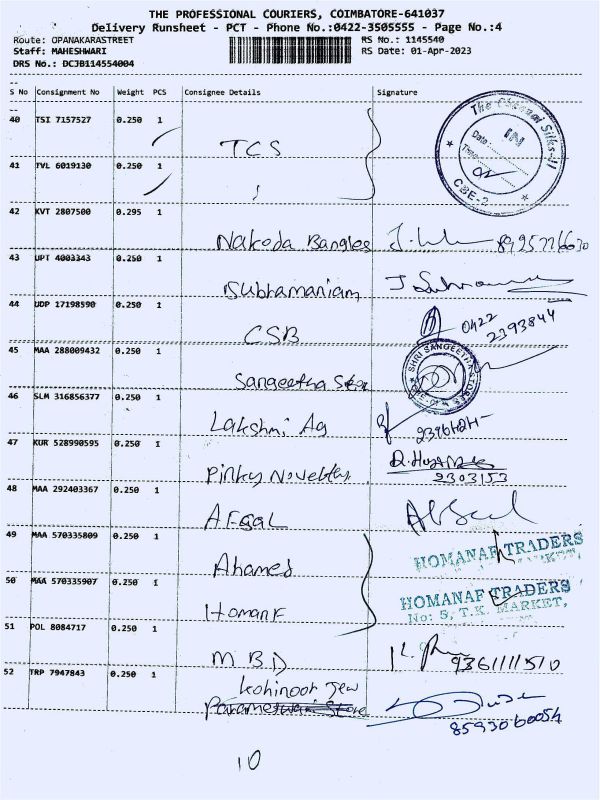 THE PROFESSIONAL COURIERS, COIMBATORE-641037
Delivery Runsheet - PCT - Phone No.:0422-3505555 - Page No.:4
Route: OPANAKARASTREET
RS No.: 1145540
Staff: MAHESHWARI
RS Date: 01-Apr-2023
DRS No.: DCJB114554004
S No Consignment No Weight PCS Consignee Details Signature
40 TSI 7157527 0.250 1 TCS
The Chennai Silks-II
Date: IN
Time:
CBE-2
41 TVL 6019130 0.250 1
42 KVT 2807500 0.295 1 Nakoda Bangles
43 UPT 4003343 0.250 1 Subhamaniam
44 UDP 17198590 0.250 1 CSB 0422 2393844
45 MAA 288009432 0.250 1 Sangeetha Store
SHRI SANGEETHA STORES
46 SLM 316856377 0.250 1 Lakshmi Ag
47 KUR 528990595 0.250 1 Pinky Noveltey 2303153
48 MAA 292403367 0.250 1 AFSAL
49 MAA 570335809 0.250 1 Ahamed HOMANAF TRADERS
50 MAA 570335907 0.250 1 HomanF HOMANAF TRADERS
No: 5, T.K. MARKET,
51 POL 8084717 0.250 1 MBD 9361111510
52 TRP 7947843 0.250 1 Kohinoor Jew
Parameswari Store 8593060054
10